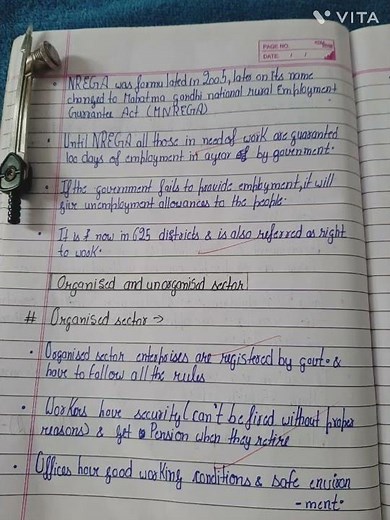 VITA
PAGE NO.
DATE / /
• NREGA was formulated in 2005, later on its name
changed to Mahatma gandhi national rural Employment
Gurrantee Act (MNREGA)
• Until NREGA all those in need of work are guaranted
100 days of employment in a year of by government.
• If the government fails to provide employment, it will
give unemployment allowances to the people.
• It is f now in 625 districts & is also referred as right
to work.
Organised and unorganised sector
# Organised sector →
• Organised sector enterpaises are registered by govt. &
have to follow all the rules
• Workers have security (can't be fired without proper
reasons) & get Pension when they retire
• Offices have good working conditions & safe environ
-ment.